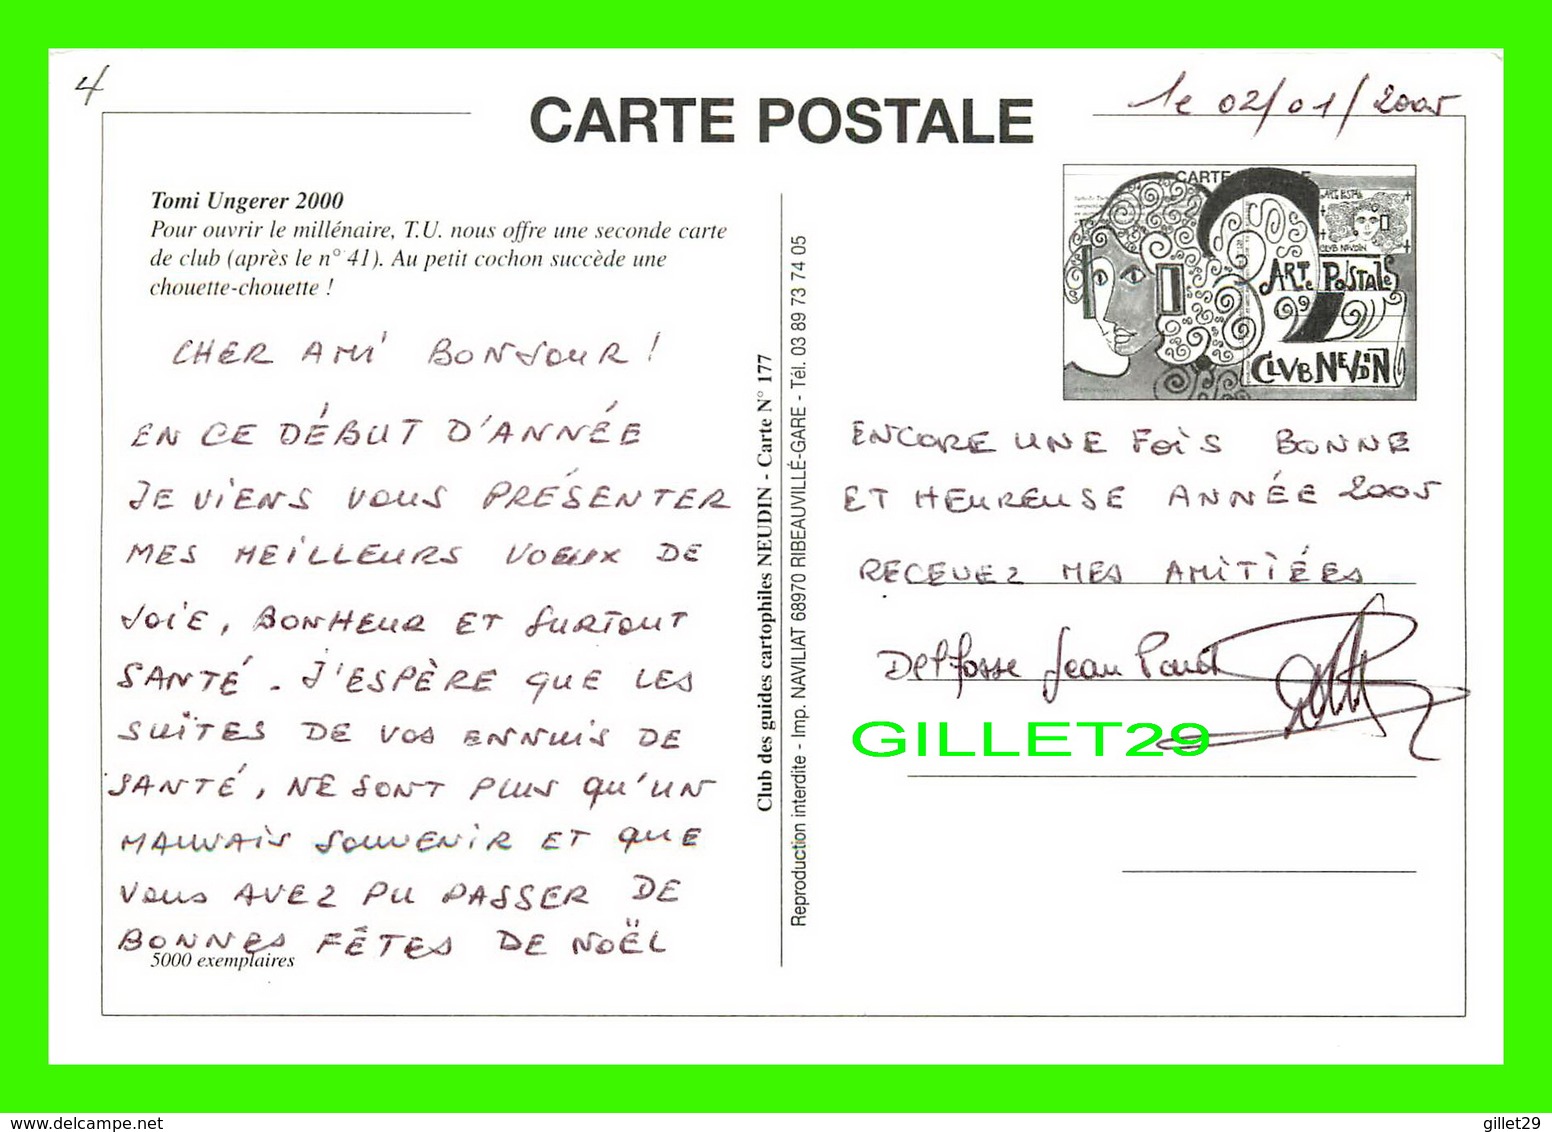 4
CARTE POSTALE
le 02/01/2005
Tomi Ungerer 2000
Pour ouvrir le millénaire, T.U. nous offre une seconde carte
de club (après le n° 41). Au petit cochon succède une
chouette-chouette !
CHER AMI BONJOUR !
EN CE DÉBUT D'ANNÉE
JE VIENS VOUS PRÉSENTER
MES MEILLEURS VOEUX DE
JOIE, BONHEUR ET SURTOUT
SANTÉ. J'ESPÈRE QUE LES
SUITES DE VOS ENNUIS DE
SANTÉ, NE SONT PLUS QU'UN
MAUVAIS SOUVENIR ET QUE
VOUS AVEZ PU PASSER DE
BONNES FÊTES DE NOËL
5000 exemplaires
Club des guides cartophiles NEUDIN - Carte N° 177
Reproduction interdite - Imp. NAVILIAT 68970 RIBEAUVILLÉ-GARE - Tél. 03 89 73 74 05
CARTE
CLUB NEUDIN
ARTe POSTALES
CLUB NEUDIN
ENCORE UNE FOIS BONNE
ET HEUREUSE ANNÉE 2005
RECEVEZ MES AMITIÉES
Delfosse Jean Paul
GILLET29
gillet29